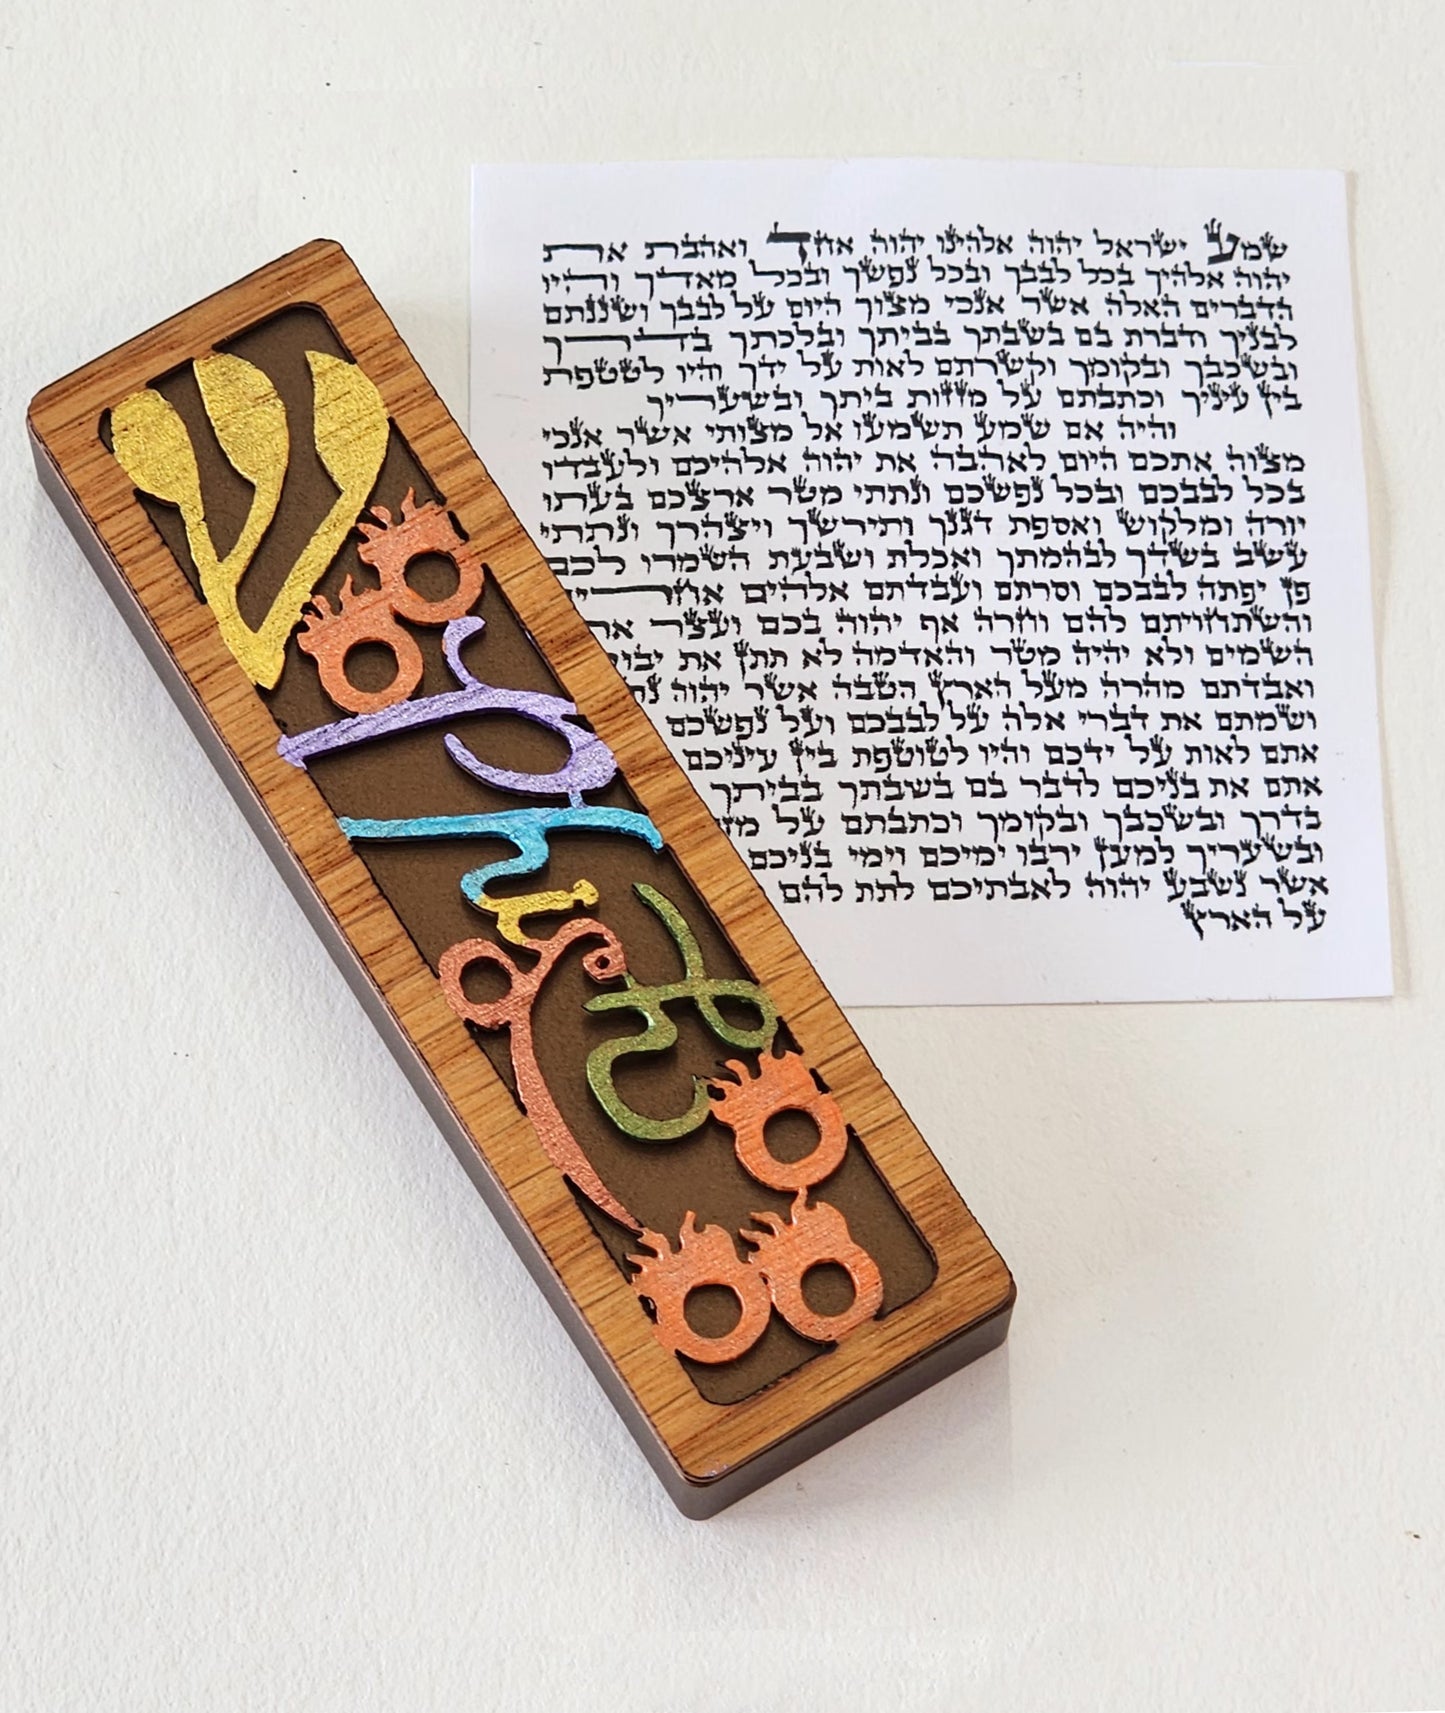 ש
שמע ישראל יהוה אלהינו יהוה אחד ואהבת את
יהוה אלהיך בכל לבבך ובכל נפשך ובכל מאדך והיו
הדברים האלה אשר אנכי מצוך היום על לבבך ושננתם
לבניך ודברת בם בשבתך בביתך ובלכתך בדרך
ובשכבך ובקומך וקשרתם לאות על ידך והיו לטטפת
בין עיניך וכתבתם על מזזות ביתך ובשעריך
והיה אם שמע תשמעו אל מצותי אשר אנכי
מצוה אתכם היום לאהבה את יהוה אלהיכם ולעבדו
בכל לבבכם ובכל נפשכם ונתתי מטר ארצכם בעתו
יורה ומלקוש ואספת דגנך ותירשך ויצהרך ונתתי
עשב בשדך לבהמתך ואכלת ושבעת השמרו לכם
פן יפתה לבבכם וסרתם ועבדתם אלהים
והשתחויתם להם וחרה אף יהוה בכם ועצר
השמים ולא יהיה מטר והאדמה לא תתן את
ואבדתם מהרה מעל הארץ הטבה אשר יהוה
ושמתם את דברי אלה על לבבכם ועל נפשכם
אתם לאות על ידכם והיו לטוטפת בין עיניכם
אתם את בניכם לדבר בם בשבתך בביתך
בדרך ובשכבך ובקומך וכתבתם על
ובשעריך למען ירבו ימיכם וימי בניכם
אשר נשבע יהוה לאבתיכם לתת להם
על הארץ